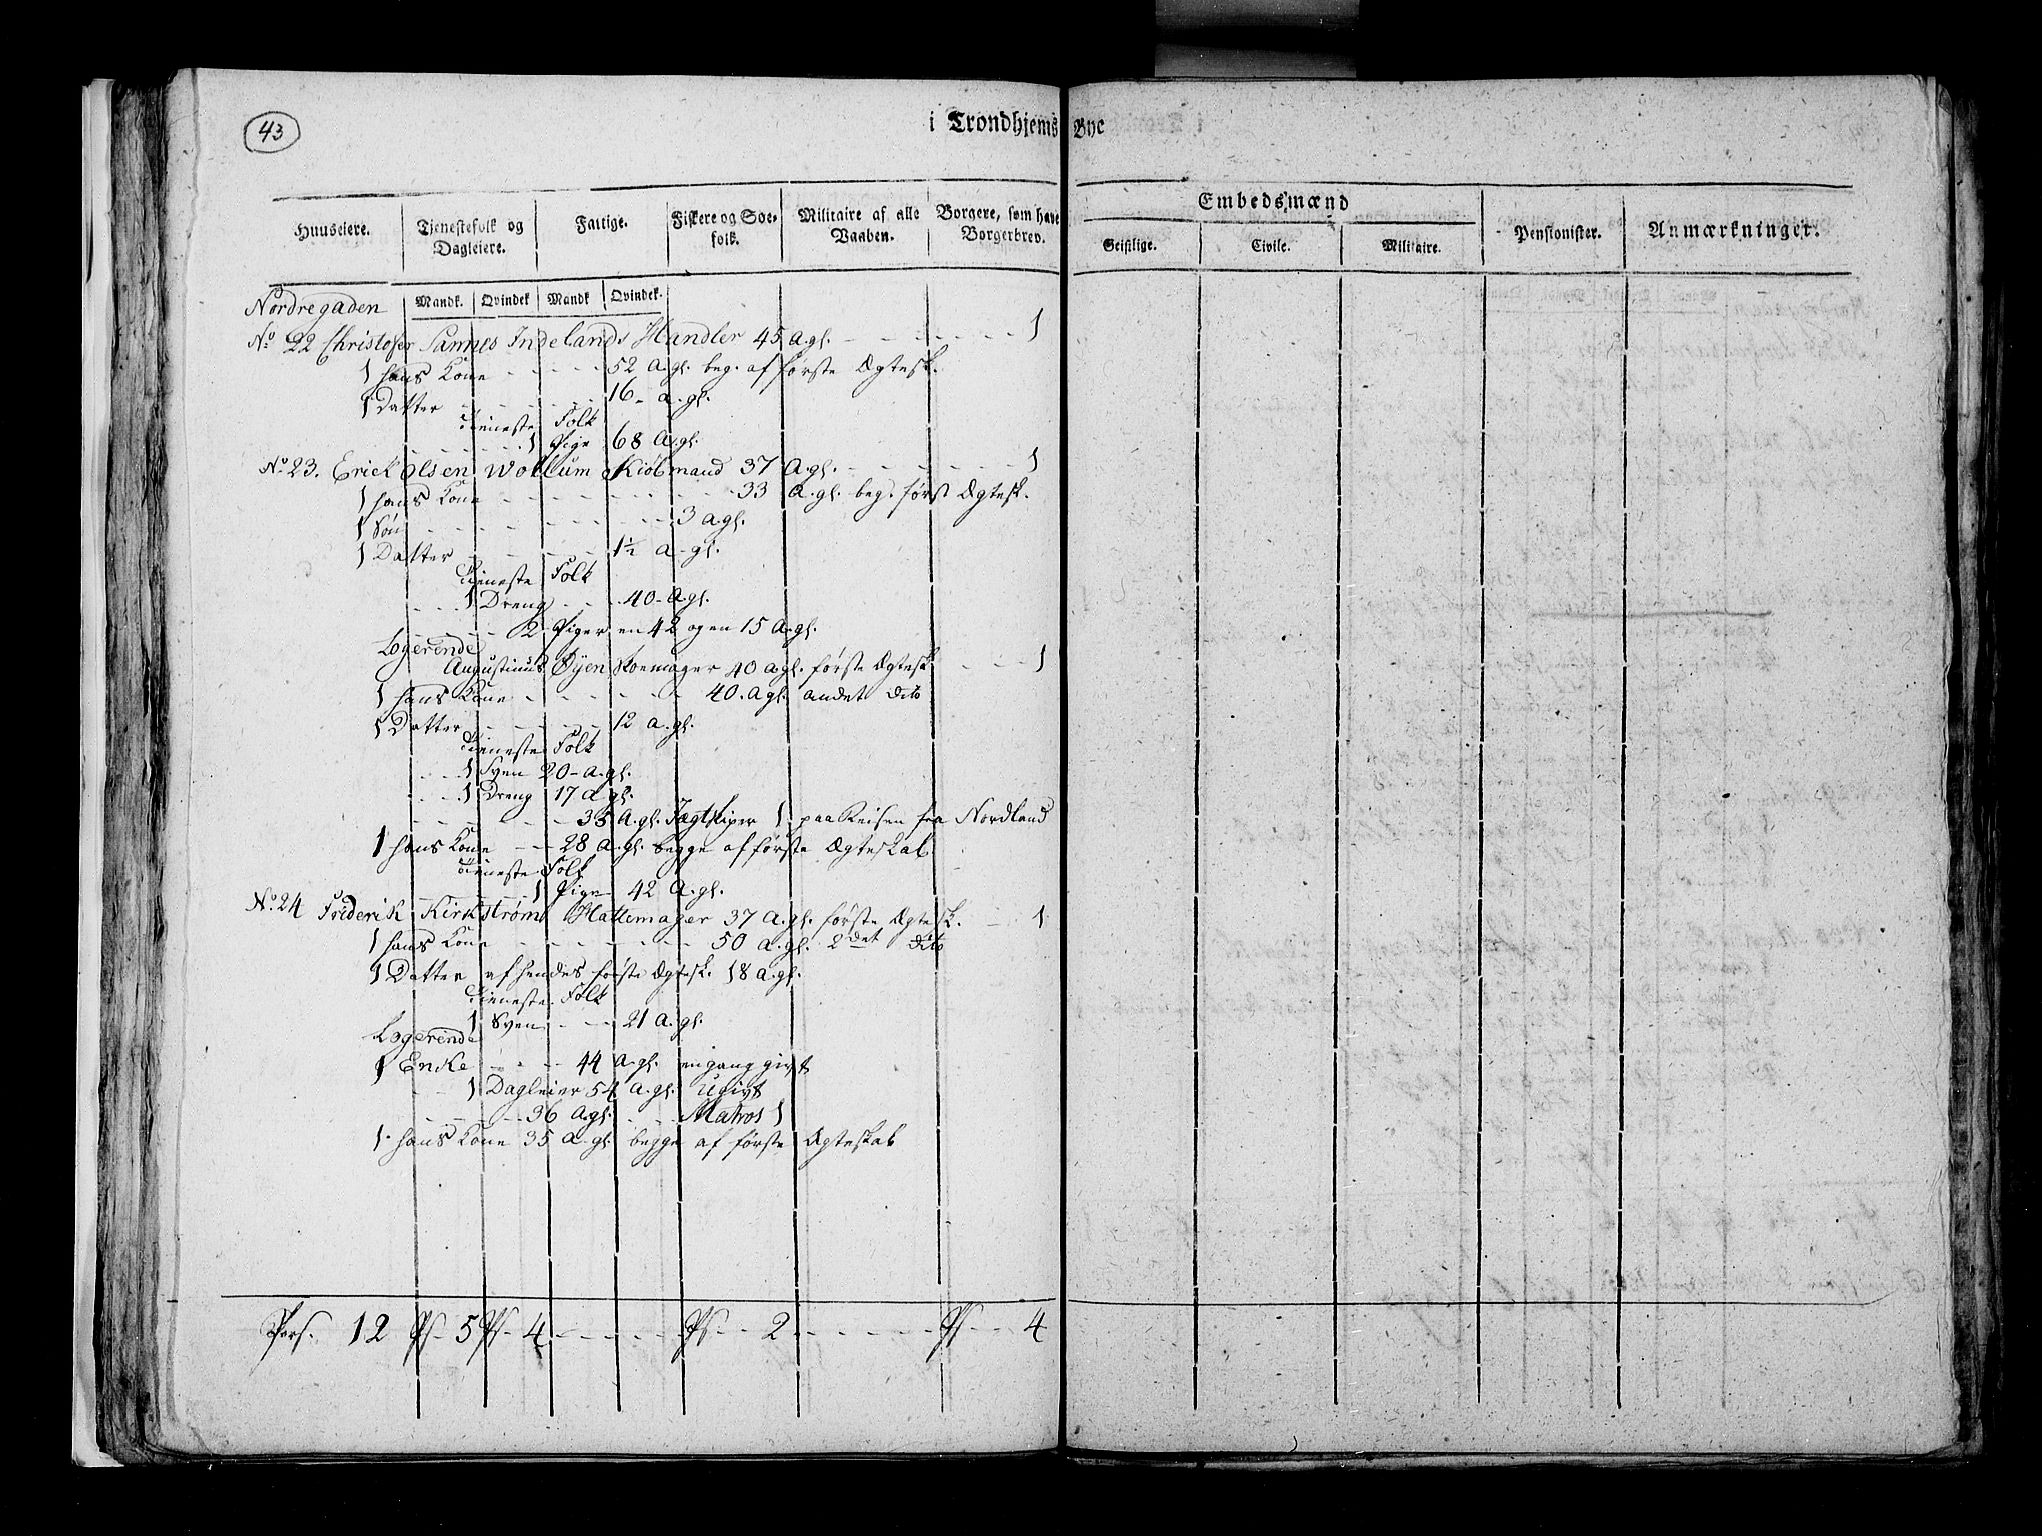 43
i Trondhjems Bye
Huuseiere. Tjenestefolk og Dagleiere. Fattige. Fiskere og Soefolk. Militaire af alle Vaaben. Borgere, som have Borgerbrev. Embedsmænd Geistlige. Civile. Militaire. Pensionister. Anmærkninger.
Nordregaden Mandk. Qvindek Mandk Qvindek.
No 22 Christofer Sannes Indelands Handler 45 a.gl. - - - - - 1
1 hans Kone - - - - 52 a.gl. beg. af første Ægtesk.
1 Datter - - - - 16 - a.gl.
Tieneste Folk
- - - - 1 Pige 68 a.gl.
No 23. Erick Olsen Wollum Kiøbmand 37 a.gl. - - - - - 1
1 hans Kone - - - - - - - 33 a.gl. beg. først Ægtesk.
1 Søn - - - - - - - 3 a.gl.
1 Datter - - - - 1½ a.gl.
Tieneste Folk
- - - 1 Dreng - - - 40 - a.gl.
- - - - 2 Piger en 42 og en 15 a.gl.
Logerende
Augustinus Øyen Skoemager 40 a.gl. første Ægtesk - - - 1
1 hans Kone - - - - - - 40. a.gl. andet dito
1 Datter - - - - 12 a.gl.
Tieneste Folk
- - - 1 Sven 20 - a.gl.
- - - 1 Dreng 17 a.gl.
- - - - - - 35 a.gl. Jægtskiper 1 paa Reisen fra Nordland
1 hans Kone - - 28 a.gl. begge af første Ægteskab
Tieneste Folk
1 Pige 42 a.gl.
No 24 Friderik Kirkstrøm Hattemager 37 a.gl. første Ægtesk. - 1
1 hans Kone - - - - - - 50 a.gl. 2det dito
1 Datter af hendes første Ægtesk. 18 a.gl.
Tieneste Folk
1 Sven - - - 21 a.gl.
Logerende
1 Enke - - - 44 a.gl. en gang givt
- - 1 Dagleier 54 a.gl. Ugivt
- - - - 36 a.gl. - - Matros 1
1. hans Kone 35 a.gl. begge af første Ægteskab
Pers. 12 Ps - 5 Ps - 4 - - - - - Ps - - 2 - - - - - - Ps - - 4